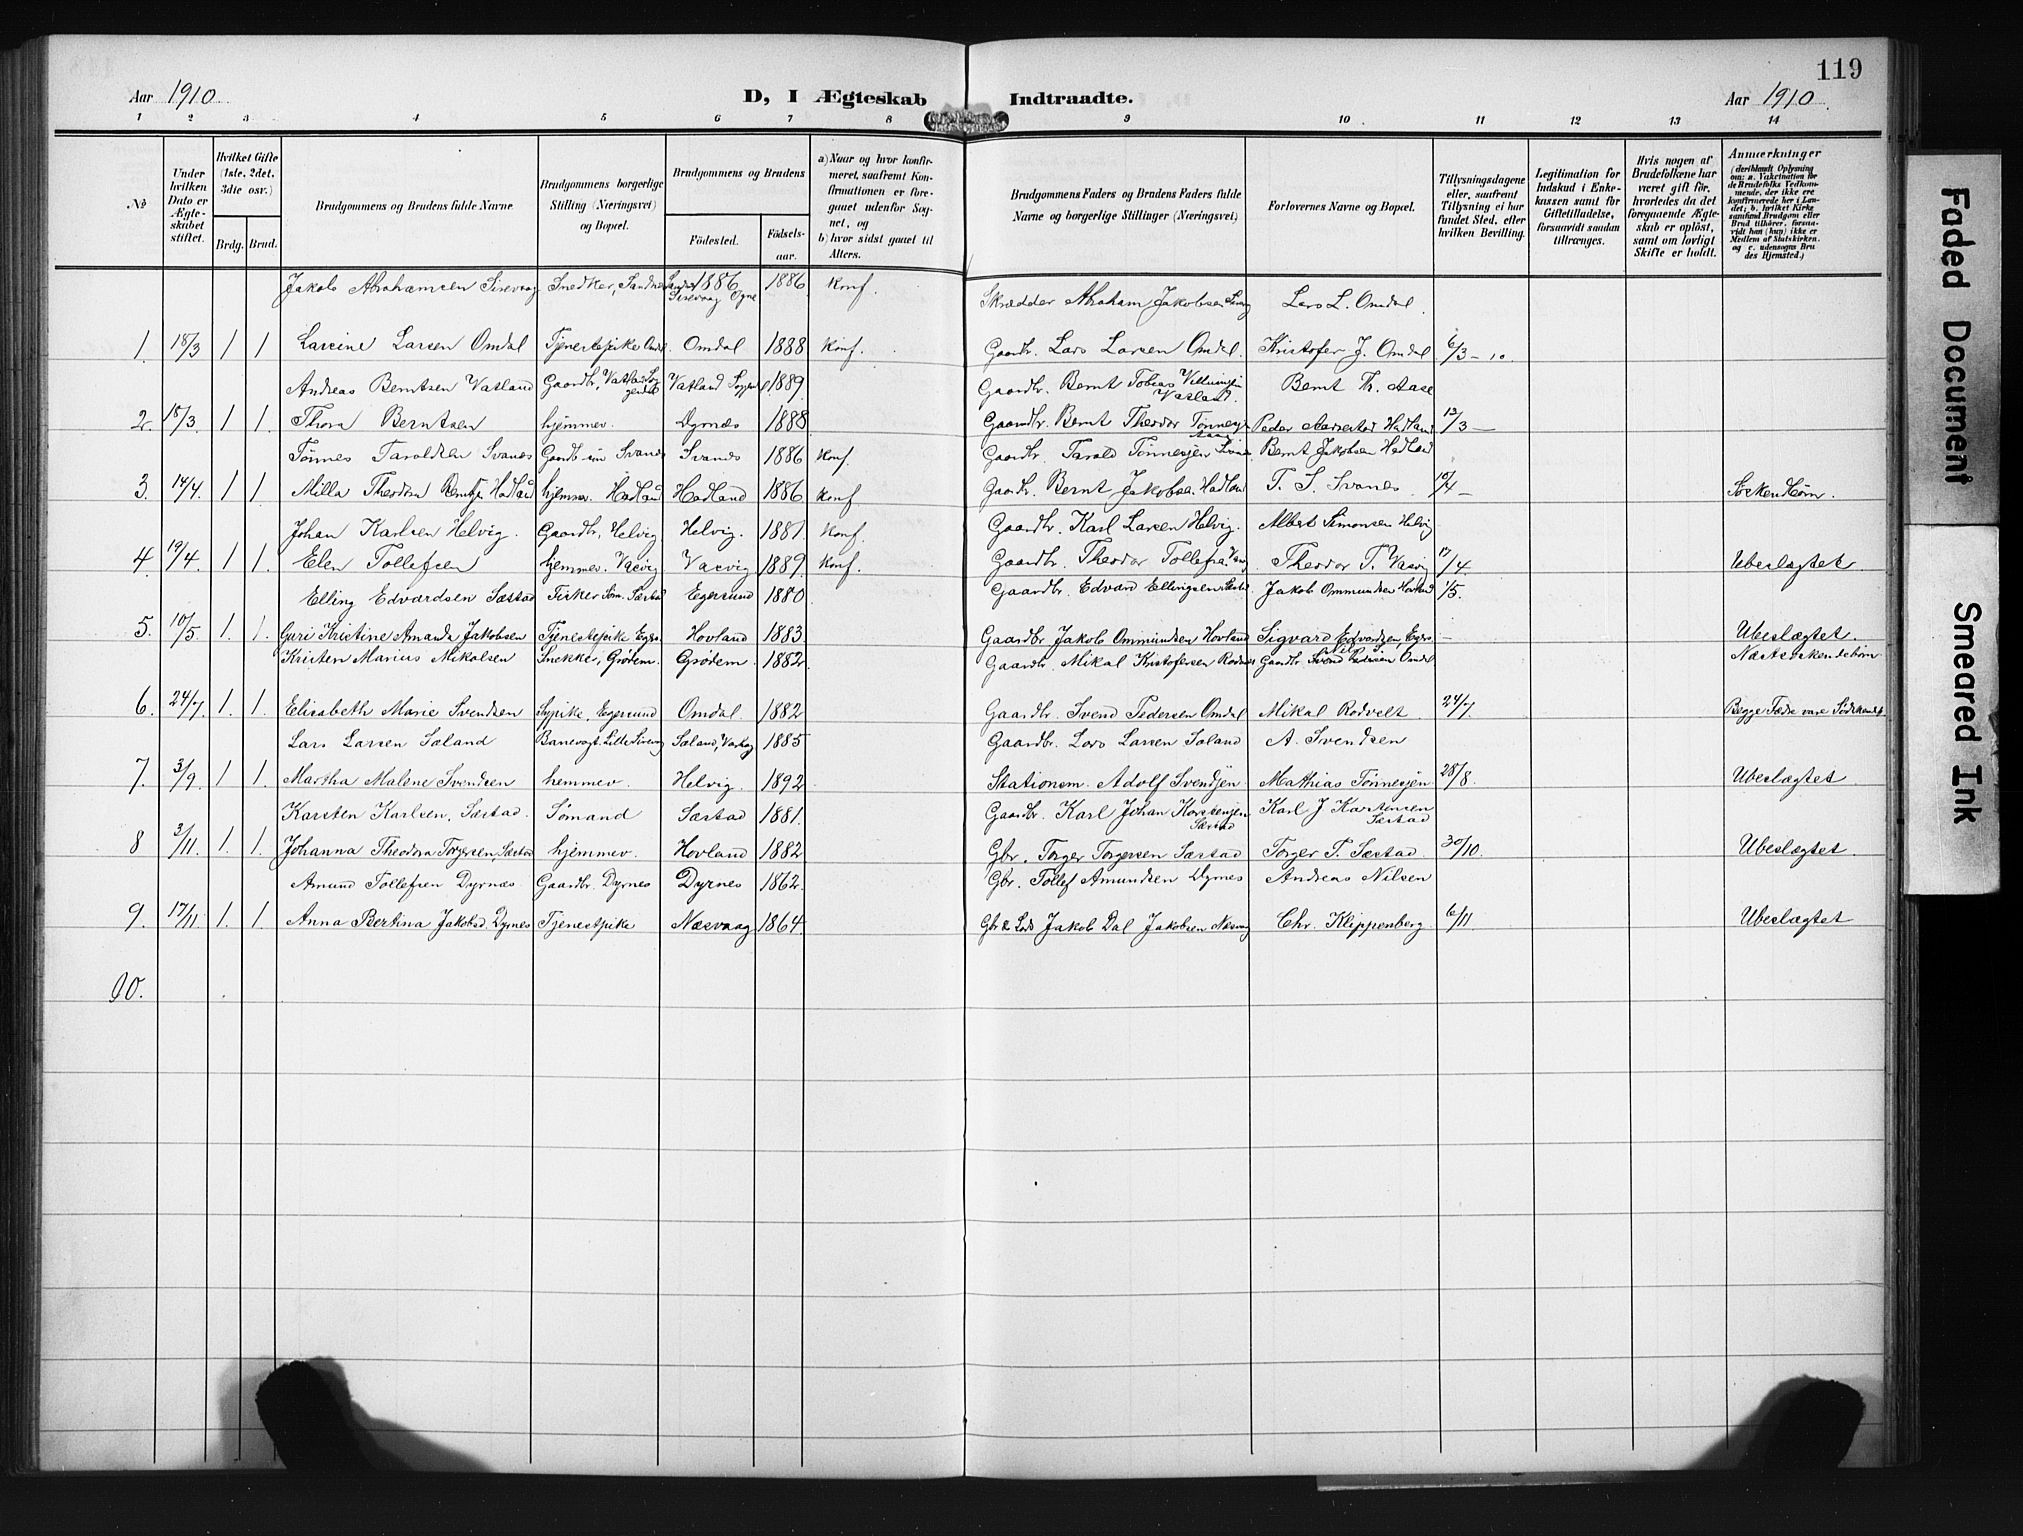 119
Aar 1910.
D, I Ægteskab Indtraadte.
Aar 1910.
1 2 3 4 5 6 7 8 9 10 11 12 13 14
No
Under hvilken Dato er Ægteskabet stiftet.
Hvilket Gifte (1ste, 2det, 3die osv.)
Brdg. Brud.
Brudgommens og Brudens fulde Navne
Brudgommens borgerlige Stilling (Næringsvei) og Bopæl.
Brudgommens og Brudens
Födested. Födselsaar.
a) Naar og hvor konfirmeret, saafremt Konfirmationen er foregaaet udenfor Sognet, og
b) hvor sidst gaaet til Alters.
Brudgommens Faders og Brudens Faders fulde Navne og borgerlige Stillinger (Næringsvei)
Forlovernes Navne og Bopæl.
Tillysningsdagene eller, saafremt Tillysning ei har fundet Sted, efter hvilken Bevilling.
Legitimation for Indskud i Enkekassen samt for Giftetilladelse, forsaavidt saadan tiltrænges.
Hvis nogen af Brudefolkene har været gift för, hvorledes da det foregaaende Ægteskab er oplöst, samt om lovligt Skifte er holdt.
Anmærkninger
Jakob Abrahamsen Sirevaag Snedker, Sandnes 1886 Sirevaag Ogne 1886 Konf. Skrædder Abraham Jakobsen Lars L. Omdal.
1. 18/3 1 1 Larsine Larsen Omdal Tjenestepike Omdal Omdal 1888 Konf. Gaardbr. Lars Larsen Omdal. Kristofer J. Omdal 6/3 - 10.
Andreas Berntsen Vatland Gaardbr, Vatland Vatland 1889. Gaardbr. Bernt Tobias Vatland. Bernt Th. Aase
2. 18/3. 1 1. Thora Berntsen hjemmev. Dyrnæs 1888 Gaardbr. Bernt Theodor Tönnesen Peder Hadland 13/3 —
Tönnes Taroldsen Svanes Svanes Svanes 1886 Konf. Gaardbr. Tarald Tönnesen Bernt Jakobsen Hadland
3. 14/4. 1 1 Milla Theodora Hadland hjemmev. Hadland Hadland 1886 Konf Gaardbr. Bernt Jakobsen Hadland T. S. Svanes 10/4 — Söskenbörn.
Johan Karlsen Helvig. Gaardbr, Helvig. Helvig. 1881. Konf. Gaardbr. Karl Larsen Helvig. Albert Simonsen Helvig
4. 19/4. 1 1. Elen Tollefsen hjemmev. Vasvig Vasvig 1889. Konf. Gaardbr. Theodor Tollefsen Theodor T. Vasvig 17/4 Ubeslægtet.
Elling Edvardsen Sæstad Sæstad Egersund 1880 Gaardbr. Edvard Ellingsen Jakob Ommundsen Hovland 1/5.
5. 10/5. 1. 1. Guri Kristine Amanda Jakobsen Tjenestepike Egers. Hovland 1883. Gaardbr Jakob Ommundsen Hovland Sigvard Edvardsen, Egers. Ubeslægtet.
Kristen Marius Mikalsen Snekker, Grödem. Grödem. 1882. Gaardbr. Mikal Kristofersen Gaardbr. Svend Pedersen Omdal Næstsöskendebörn
6. 24/7. 1. 1. Elisabeth Marie Svendsen Sypike, Egersund Omdal. 1882 Gaardbr. Svend Pedersen Omdal Mikal Rodvelt. 24/7 Begge Fædre vare Södskende
Lars Larsen Saland Banevogt. Lille Sirevaag Saland, Varhaug 1885 Gaardbr. Lars Larsen Saland A. Svendsen
7. 3/9. 1 1. Martha Malene Svendsen hemmev. Helvig. 1892 Stationsm. Adolf Svendsen Mathias Tönnesen 28/8. Ubeslægtet
Karsten Karlsen, Sæstad. Sömand Sæstad 1881. Gaardbr. Karl Johan Karstensen Sæstad Karl J Karstensen Sæstad
8 3/11. 1. 1. Johanna Theodora Torgersen, Sæstad hjemmev. Hovland 1882 Gbr. Torger Torgersen Sæstad Torger T. Sæstad. 30/10. Ubeslægtet.
Amund Tollefsen Dyrnæs. Gaardbr. Dyrnes Dyrnes 1862. Gbr. Tollef Amundsen Dyrnes Andreas Nilsen
9. 17/11. 1. 1. Anna Bertina Jakobsd. Dyrnes Tjenestpike Næsvaag 1864. Gbr & Lods Jakob Dal Jakobsen Næsvaag Chr. Klippenberg. 6/11. Ubeslægtet
10.
Faded Document
Smeared Ink